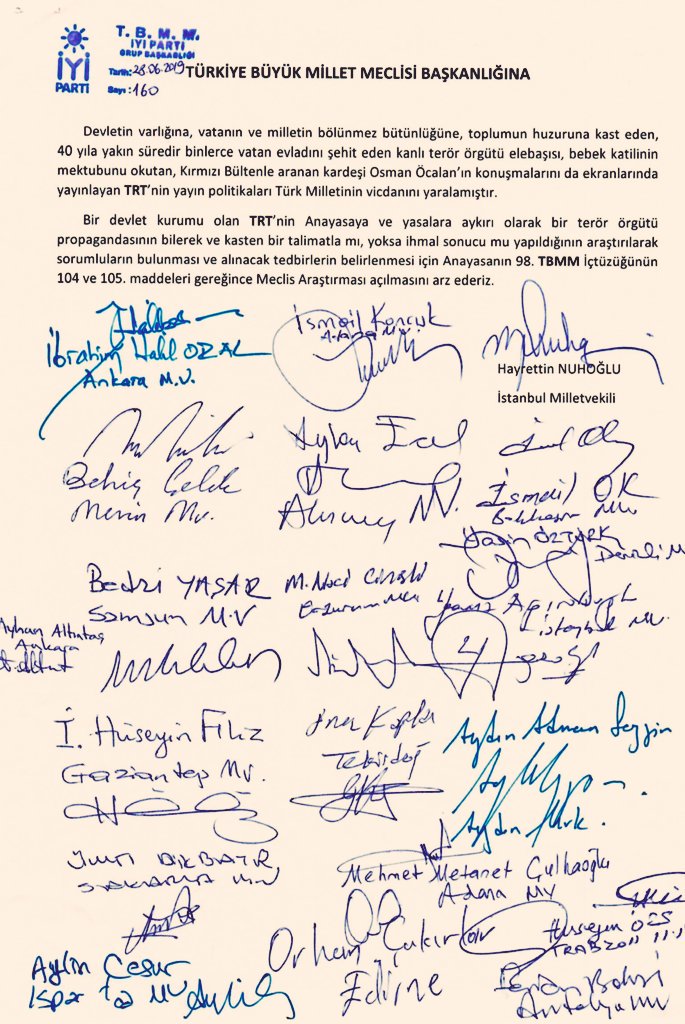 T. B. M. M.
İYİ PARTİ
GRUP BAŞKANLIĞI
Tarih: 28.06.2019
Sayı: 160
İYİ
PARTİ
TÜRKİYE BÜYÜK MİLLET MECLİSİ BAŞKANLIĞINA
Devletin varlığına, vatanın ve milletin bölünmez bütünlüğüne, toplumun huzuruna kast eden,
40 yıla yakın süredir binlerce vatan evladını şehit eden kanlı terör örgütü elebaşısı, bebek katilinin
mektubunu okutan, Kırmızı Bültenle aranan kardeşi Osman Öcalan’ın konuşmalarını da ekranlarında
yayınlayan TRT’nin yayın politikaları Türk Milletinin vicdanını yaralamıştır.
Bir devlet kurumu olan TRT’nin Anayasaya ve yasalara aykırı olarak bir terör örgütü
propagandasının bilerek ve kasten bir talimatla mı, yoksa ihmal sonucu mu yapıldığının araştırılarak
sorumluların bulunması ve alınacak tedbirlerin belirlenmesi için Anayasanın 98. TBMM İçtüzüğünün
104 ve 105. maddeleri gereğince Meclis Araştırması açılmasını arz ederiz.
İbrahim Halil ORAL
Ankara M.V.
İsmail Koncuk
Adana MV.
Hayrettin NUHOĞLU
İstanbul Milletvekili
Behiç Çelik
Mersin Mv.
Ayhan Erel
Aksaray MV.
İsmail OK
Balıkesir MV
Yasin ÖZTÜRK
Denizli M
Bedri YAŞAR
Samsun M.V
M. Naci Cinisli
Erzurum MV
Yavuz Ağıralioğlu
İstanbul MV.
Ayhan Altıntaş
Ankara
İ. Hüseyin Filiz
Gaziantep Mv.
Tekirdağ
Aydın Adnan Sezgin
Aydın Mvk.
Ümit DİKBAYIR
SAKARYA M.V
Mehmet Metanet Çulhaoğlu
Adana MV
Hüseyin ÖRS
TRABZON M.V
Aylin Cesur
Isparta MV
Orhan Çakırlar
Edirne
Antalya MV